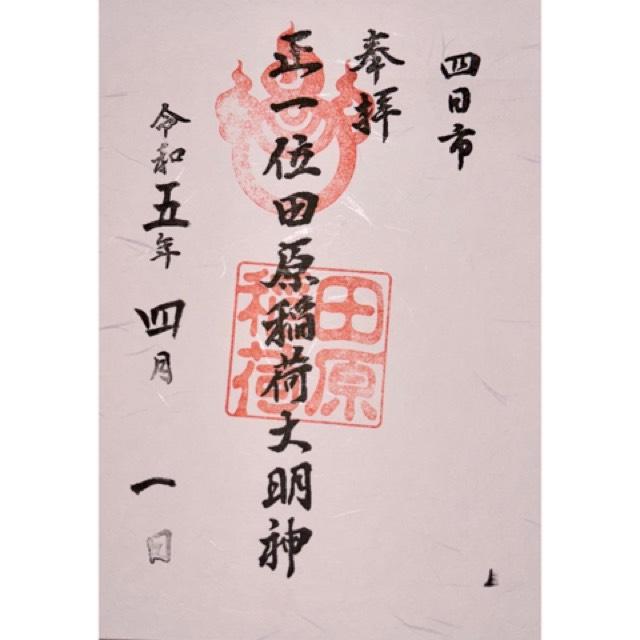 四日市
奉拝
正一位田原稲荷大明神
田原
稲荷
令和五年 四月 一日
上